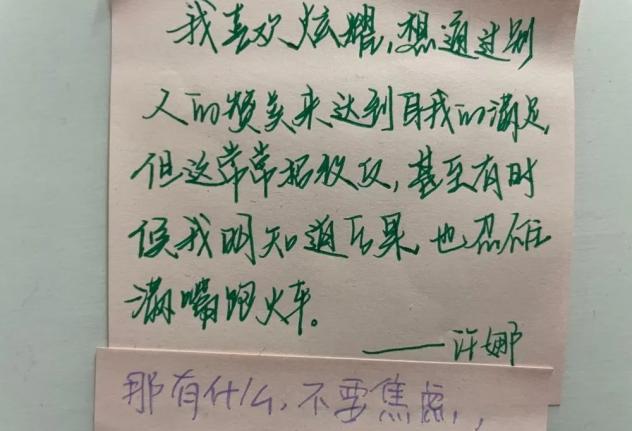 我喜欢炫耀,想通过别
人的赞美来达到自我的满足,
但这常常招致反,甚至有时
候我明知道后果,也忍不住
满嘴跑火车。
——许娜
那有什么,不要焦虑,